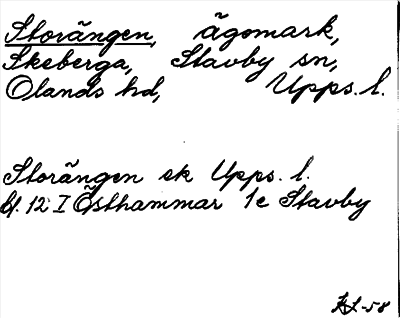 Storängen, ägomark,
Skeberga, Stavby sn,
Olands hd, Upps. l.
Storängen ek Upps. l.
bl. 12 I Östhammar 1c Stavby